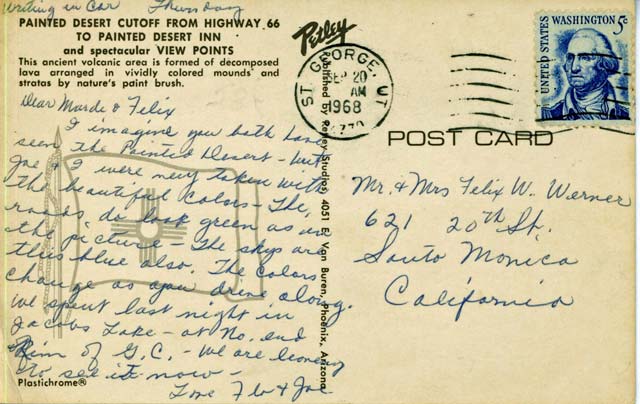 Writing in Car Thursday
PAINTED DESERT CUTOFF FROM HIGHWAY 66
TO PAINTED DESERT INN
and spectacular VIEW POINTS
This ancient volcanic area is formed of decomposed
lava arranged in vividly colored mounds and
stratas by nature's paint brush.
Dear Marde & Felix
I imagine you both have
seen the Painted Desert - but
Joe & I were very taken with
the beautiful colors - The
roads do look green as in
the picture - The skys are
this blue also. The colors
change as you drive along.
We spent last night in
Jacobs Lake - at No. end
Rim of G.C. - We are leaving
to see it now -
Love Flo & Joe
Plastichrome®
Petley
Published by Petley Studios, 4051 E. Van Buren, Phoenix, Arizona
ST. GEORGE, UT
SEP 20
AM
1968
UNITED STATES
WASHINGTON 5c
POST CARD
Mr. & Mrs Felix W. Werner
621 20th St.
Santa Monica
California